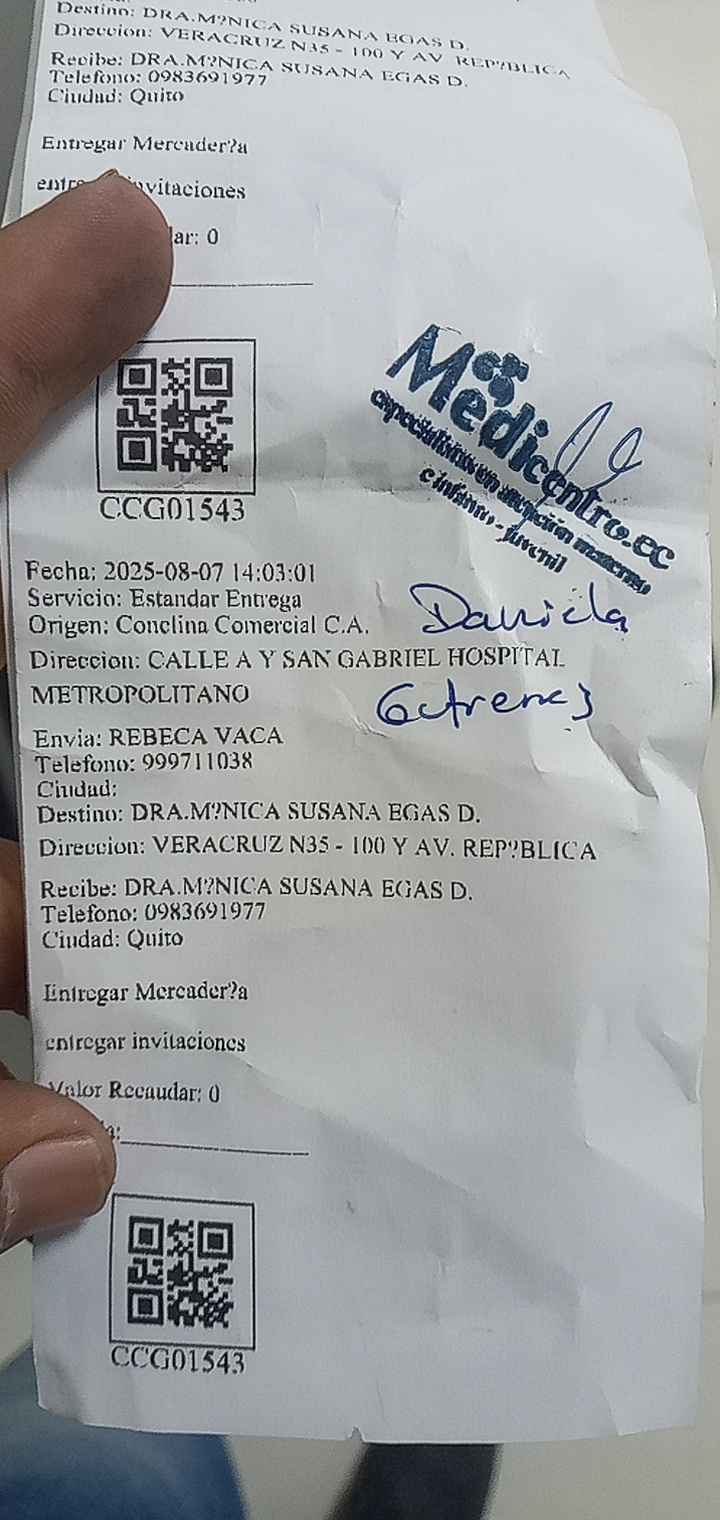 Destino: DRA.M?NICA SUSANA EGAS D.
Direccion: VERACRUZ N35 - 100 Y AV. REP?BLICA
Recibe: DRA.M?NICA SUSANA EGAS D.
Telefono: 0983691977
Ciudad: Quito
Entregar Mercader?a
invitaciones
: 0
Medicentro.ec
especialistas en atención materno
e infanto - juvenil
CCG01543
Fecha: 2025-08-07 14:03:01
Servicio: Estandar Entrega
Origen: Conclina Comercial C.A.
Daniela
Direccion: CALLE A Y SAN GABRIEL HOSPITAL
METROPOLITANO
Envia: REBECA VACA
Telefono: 999711038
Ciudad:
Destino: DRA.M?NICA SUSANA EGAS D.
Direccion: VERACRUZ N35 - 100 Y AV. REP?BLICA
Recibe: DRA.M?NICA SUSANA EGAS D.
Telefono: 0983691977
Ciudad: Quito
Entregar Mercader?a
entregar invitaciones
Valor Recaudar: 0
CCG01543